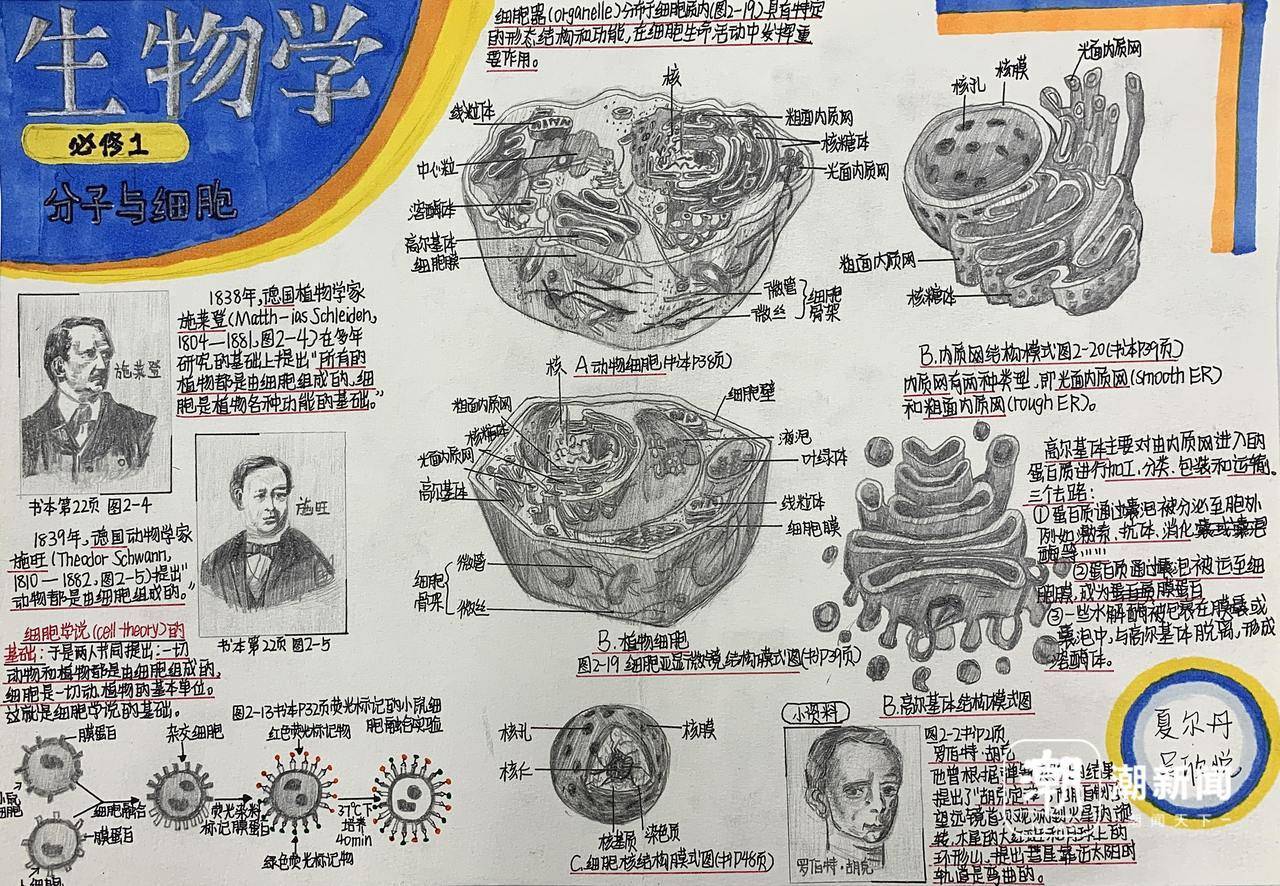 生物学
必修1
分子与细胞
细胞器(organelle)分布于细胞质内(图2-19)具有特定
的形态结构和功能,在细胞生命活动中发挥重
要作用。
线粒体
中心粒
溶酶体
高尔基体
细胞膜
核
粗面内质网
核糖体
光面内质网
微管
微丝
细胞
骨架
A动物细胞(书本P38页)
核孔
核膜
光面内质网
粗面内质网
核糖体
B.内质网结构模式图2-20(书本P39页)
内质网有两种类型,即光面内质网(smooth ER)
和粗面内质网(rough ER)。
施莱登
书本第22页 图2-4
1838年,德国植物学家
施莱登(Matth-ias Schleiden,
1804—1881,图2-4)在多年
研究的基础上提出"所有的
植物都是由细胞组成的,细
胞是植物各种功能的基础。"
施旺
书本第22页 图2-5
1839年,德国动物学家
施旺(Theodor Schwann,
1810—1882,图2-5)提出"
动物都是由细胞组成的。"
细胞学说(cell theory)的
基础:于是两人共同提出:一切
动物和植物都是由细胞组成的,
细胞是一切动植物的基本单位。
这就是细胞学说的基础。
核
粗面内质网
核糖体
光面内质网
高尔基体
细胞
骨架
微管
微丝
细胞壁
液泡
叶绿体
线粒体
细胞膜
B.植物细胞
图2-19 细胞亚显微镜结构模式图(书P39页)
高尔基体主要对由内质网进入的
蛋白质进行加工,分类,包装和运输。
三个去路:
①蛋白质通过囊泡被分泌至胞外
例如:激素、抗体、消化
酶等……
②蛋白质通过囊泡被运至细
胞膜,成为蛋白
③一些水解酶被包裹在膜囊或
囊泡中,与高尔基体脱离,形成
溶酶体。
B.高尔基体结构模式图
图2-13书本P32页荧光标记的小鼠细
胞融合实验
膜蛋白
小鼠
细胞
膜蛋白
细胞融合
杂交细胞
荧光染料
标记膜蛋白
红色荧光标记物
绿色荧光标记物
37℃下
培养
40min
核孔
核仁
核膜
核基质
染色质
C.细胞核结构模式图(书P48页)
小资料
罗伯特·胡克
图2-2书P21页
罗伯特·胡克
他曾根据弹
结果
提出了"胡
望远镜首次观测到火星的旋
转,木星的大红斑和月球上的
环形山,提出彗星靠近太阳的
轨道是弯曲的。
夏尔丹
潮新闻